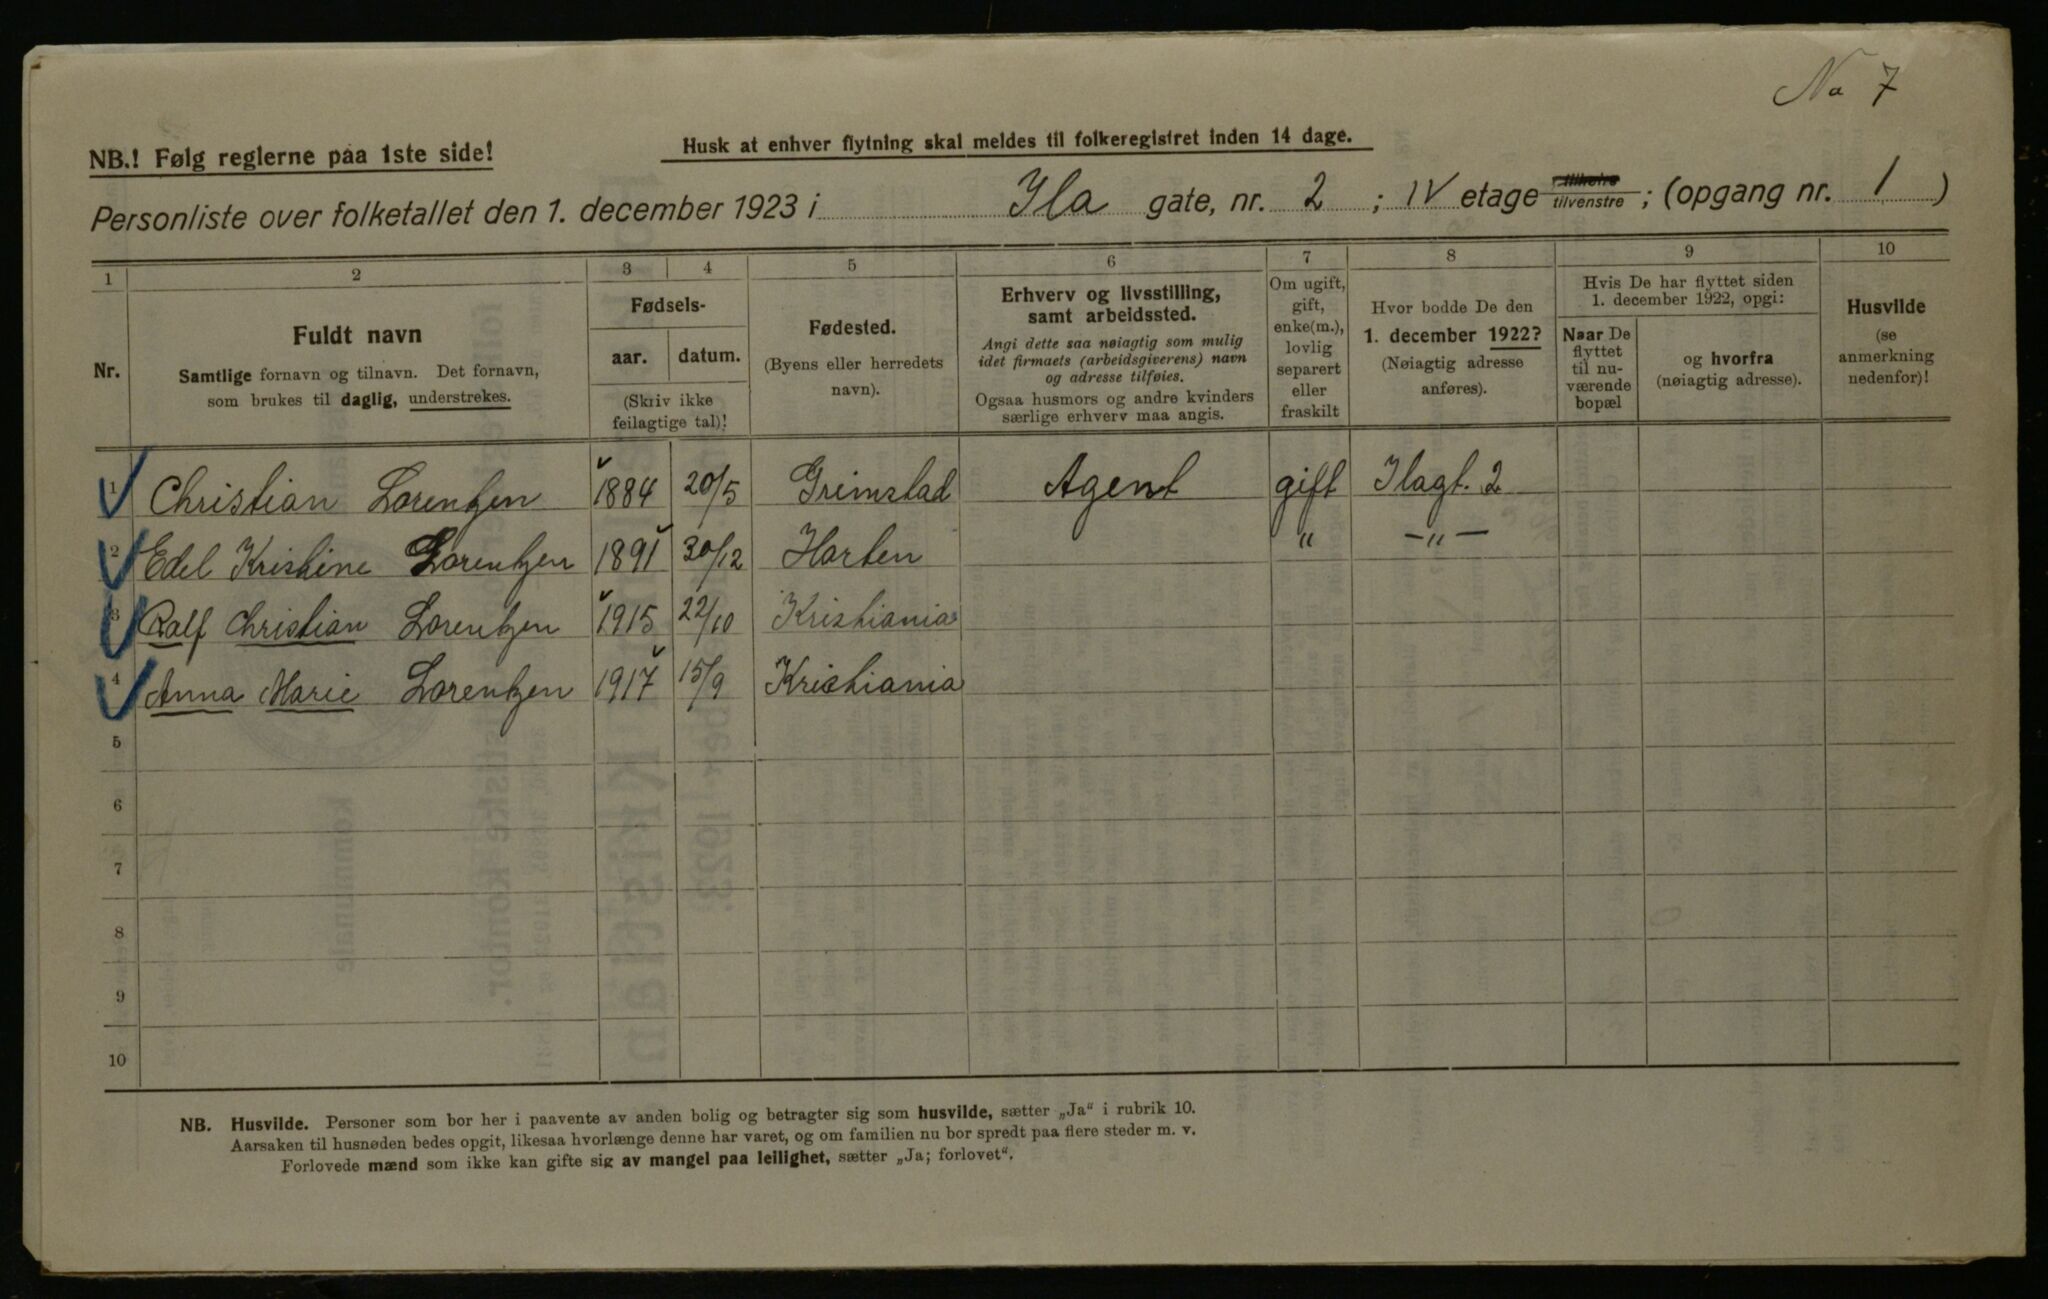 No 7
NB.! Følg reglerne paa 1ste side!
Husk at enhver flytning skal meldes til folkeregistret inden 14 dage.
Personliste over folketallet den 1. december 1923 i Ila gate, nr. 2 ; IV etage tilhøire tilvenstre ; (opgang nr. 1 )
1 2 3 4 5 6 7 8 9 10
Nr.
Fuldt navn
Samtlige fornavn og tilnavn. Det fornavn,
som brukes til daglig, understrekes.
Fødsels-
aar. datum.
(Skriv ikke
feilagtige tal)!
Fødested.
(Byens eller herredets
navn).
Erhverv og livsstilling,
samt arbeidssted.
Angi dette saa nøiagtig som mulig
idet firmaets (arbeidsgiverens) navn
og adresse tilføies.
Ogsaa husmors og andre kvinders
særlige erhverv maa angis.
Om ugift,
gift,
enke(m.),
lovlig
separert
eller
fraskilt
Hvor bodde De den
1. december 1922?
(Nøiagtig adresse
anføres).
Hvis De har flyttet siden
1. december 1922, opgi:
Naar De
flyttet
til nu-
værende
bopæl
og hvorfra
(nøiagtig adresse).
Husvilde
(se
anmerkning
nedenfor)!
1 Christian Lorentzen 1884 20/5 Grimstad Agent gift Ilagt. 2
2 Edel Kristine Lorentzen 1891 30/12 Horten " -"-
3 Rolf Christian Lorentzen 1915 22/10 Kristiania
4 Anna Marie Lorentzen 1917 15/9 Kristiania
5
6
7
8
9
10
NB. Husvilde. Personer som bor her i paavente av anden bolig og betragter sig som husvilde, sætter „Ja“ i rubrik 10.
Aarsaken til husnøden bedes opgit, likesaa hvorlænge denne har varet, og om familien nu bor spredt paa flere steder m. v.
Forlovede mænd som ikke kan gifte sig av mangel paa leilighet, sætter „Ja; forlovet“.